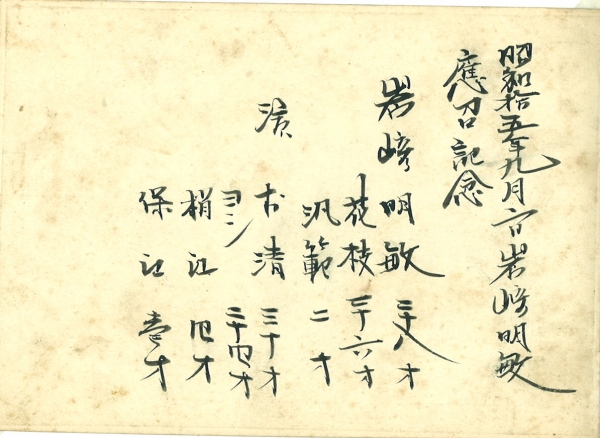 昭和拾五年九月 岩﨑明敏
應召記念
岩﨑明敏 三十八才
花枝 三十六才
汎範 二才
濱 清 三十才
ヨシ 二十四才
梢江 四才
保江 壹才